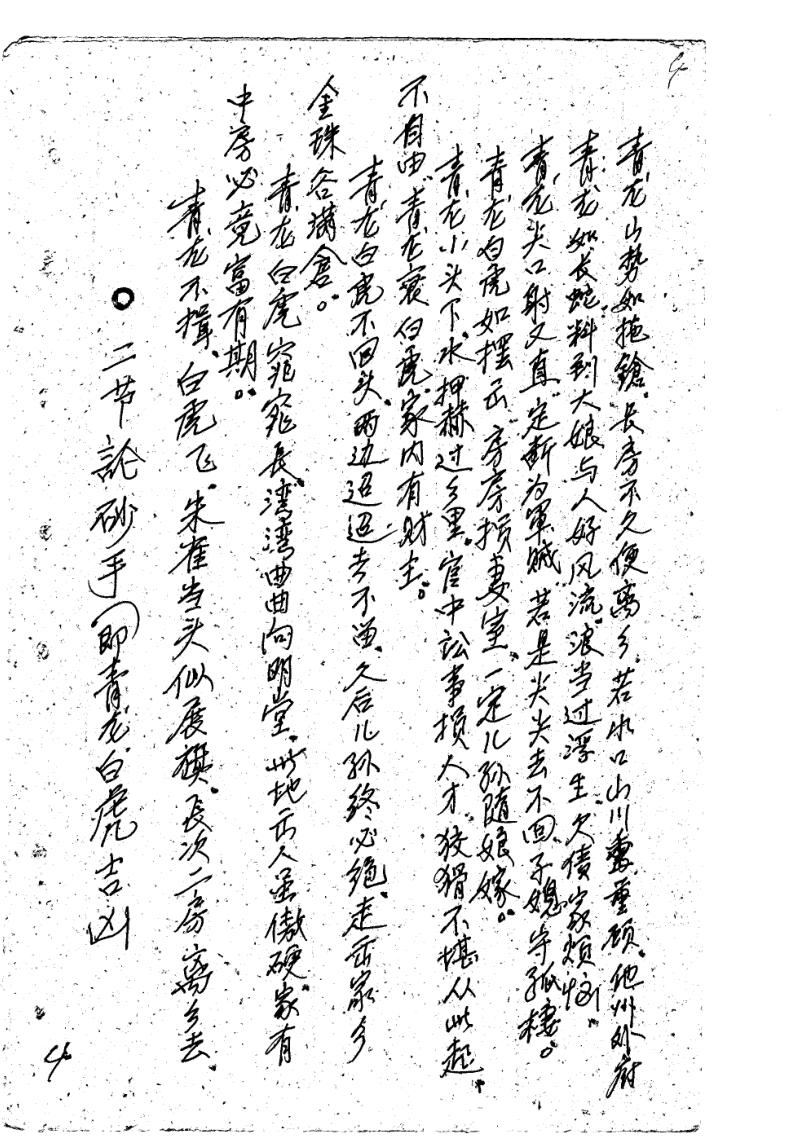 4
青龙山势如拖鎗、长房不久便离乡、若水口山川重重顾、他州外府
青龙如长蛇、料到大娘与人好风流、浪当过浮生、欠债家烦恼。
青龙尖口射又直、定断为軍贼、若是尖尖去不回、子媳守孤棲。
青龙白虎如摆出、房房损妻室、一定儿孙随娘嫁。
青龙小头下水、押赫过乡里、官中訟事损人才、狡猾不堪从此起、
不自由、青龙衮白虎、家内有财主。
青龙白虎不回头、两边迢迢去不留、久后儿孙终必绝、走出家乡
金珠谷满仓。
青龙白虎窕窕長、湾湾曲曲向明堂、此地出人虽傲硬、家有
中房必竟富有期。
青龙不揖、白虎飞、朱雀当头似展旗、長次二房离乡去、
○ 二节論砂手（即青龙白虎吉凶
4